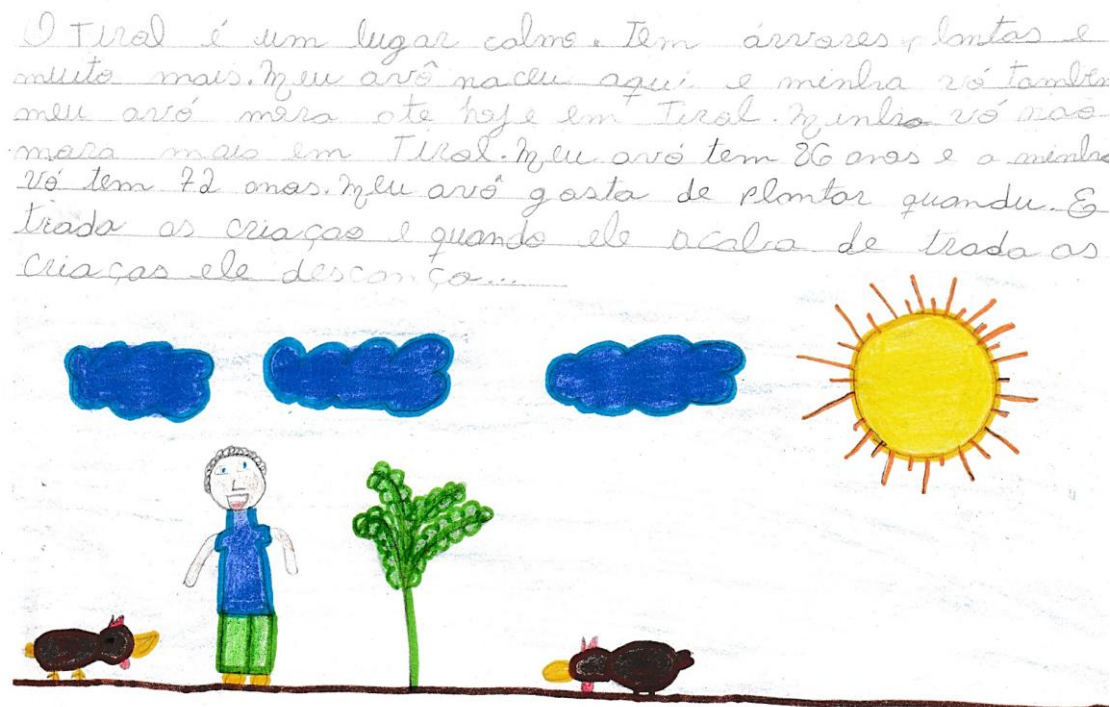 O Tiral é um lugar calmo. Tem árvores plantas e
muito mais. Meu avô naceu aqui e minha vó também
meu avô mora ate hoje em Tiral. Minha vó não
mora mais em Tiral. Meu avô tem 86 anos e a minha
vó tem 72 anos. Meu avô gosta de plantar quandu. E
trada as criaçao e quando ele acaba de trada as
criaças ele descanço...